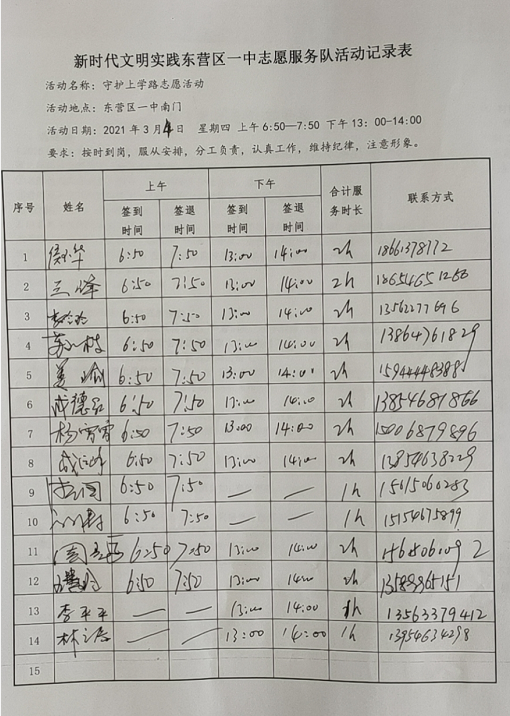 新时代文明实践东营区一中志愿服务队活动记录表
活动名称：守护上学路志愿活动
活动地点：东营区一中南门
活动日期：2021年3月4日 星期四 上午6:50—7:50 下午13:00-14:00
要求：按时到岗，服从安排，分工负责，认真工作，维持纪律，注意形象。
序号 姓名 上午 下午 合计服务时长 联系方式
签到时间 签退时间 签到时间 签退时间
1 6:50 7:50 13:00 14:00 2h 18661378112
2 6:50 7:50 13:00 14:00 2h
3 6:50 7:50 13:00 14:00 2h 13562277696
4 6:50 7:50 13:00 14:00 2h 13864761829
5 6:50 7:50 13:00 14:00 2h
6 6:50 7:50 13:00 14:00 2h 13854681866
7 杨雪雷 6:50 7:50 13:00 14:00 2h 15006879896
8 6:50 7:50 13:00 14:00 2h 13854638229
9 6:50 7:50 — — 1h
10 6:50 7:50 — — 1h 15154675899
11 6:50 7:50 13:00 14:00 2h
12 6:50 7:50 13:00 14:00 2h
13 李平平 — — 13:00 14:00 1h 13563379412
14 — — 13:00 14:00 1h 13954634298
15